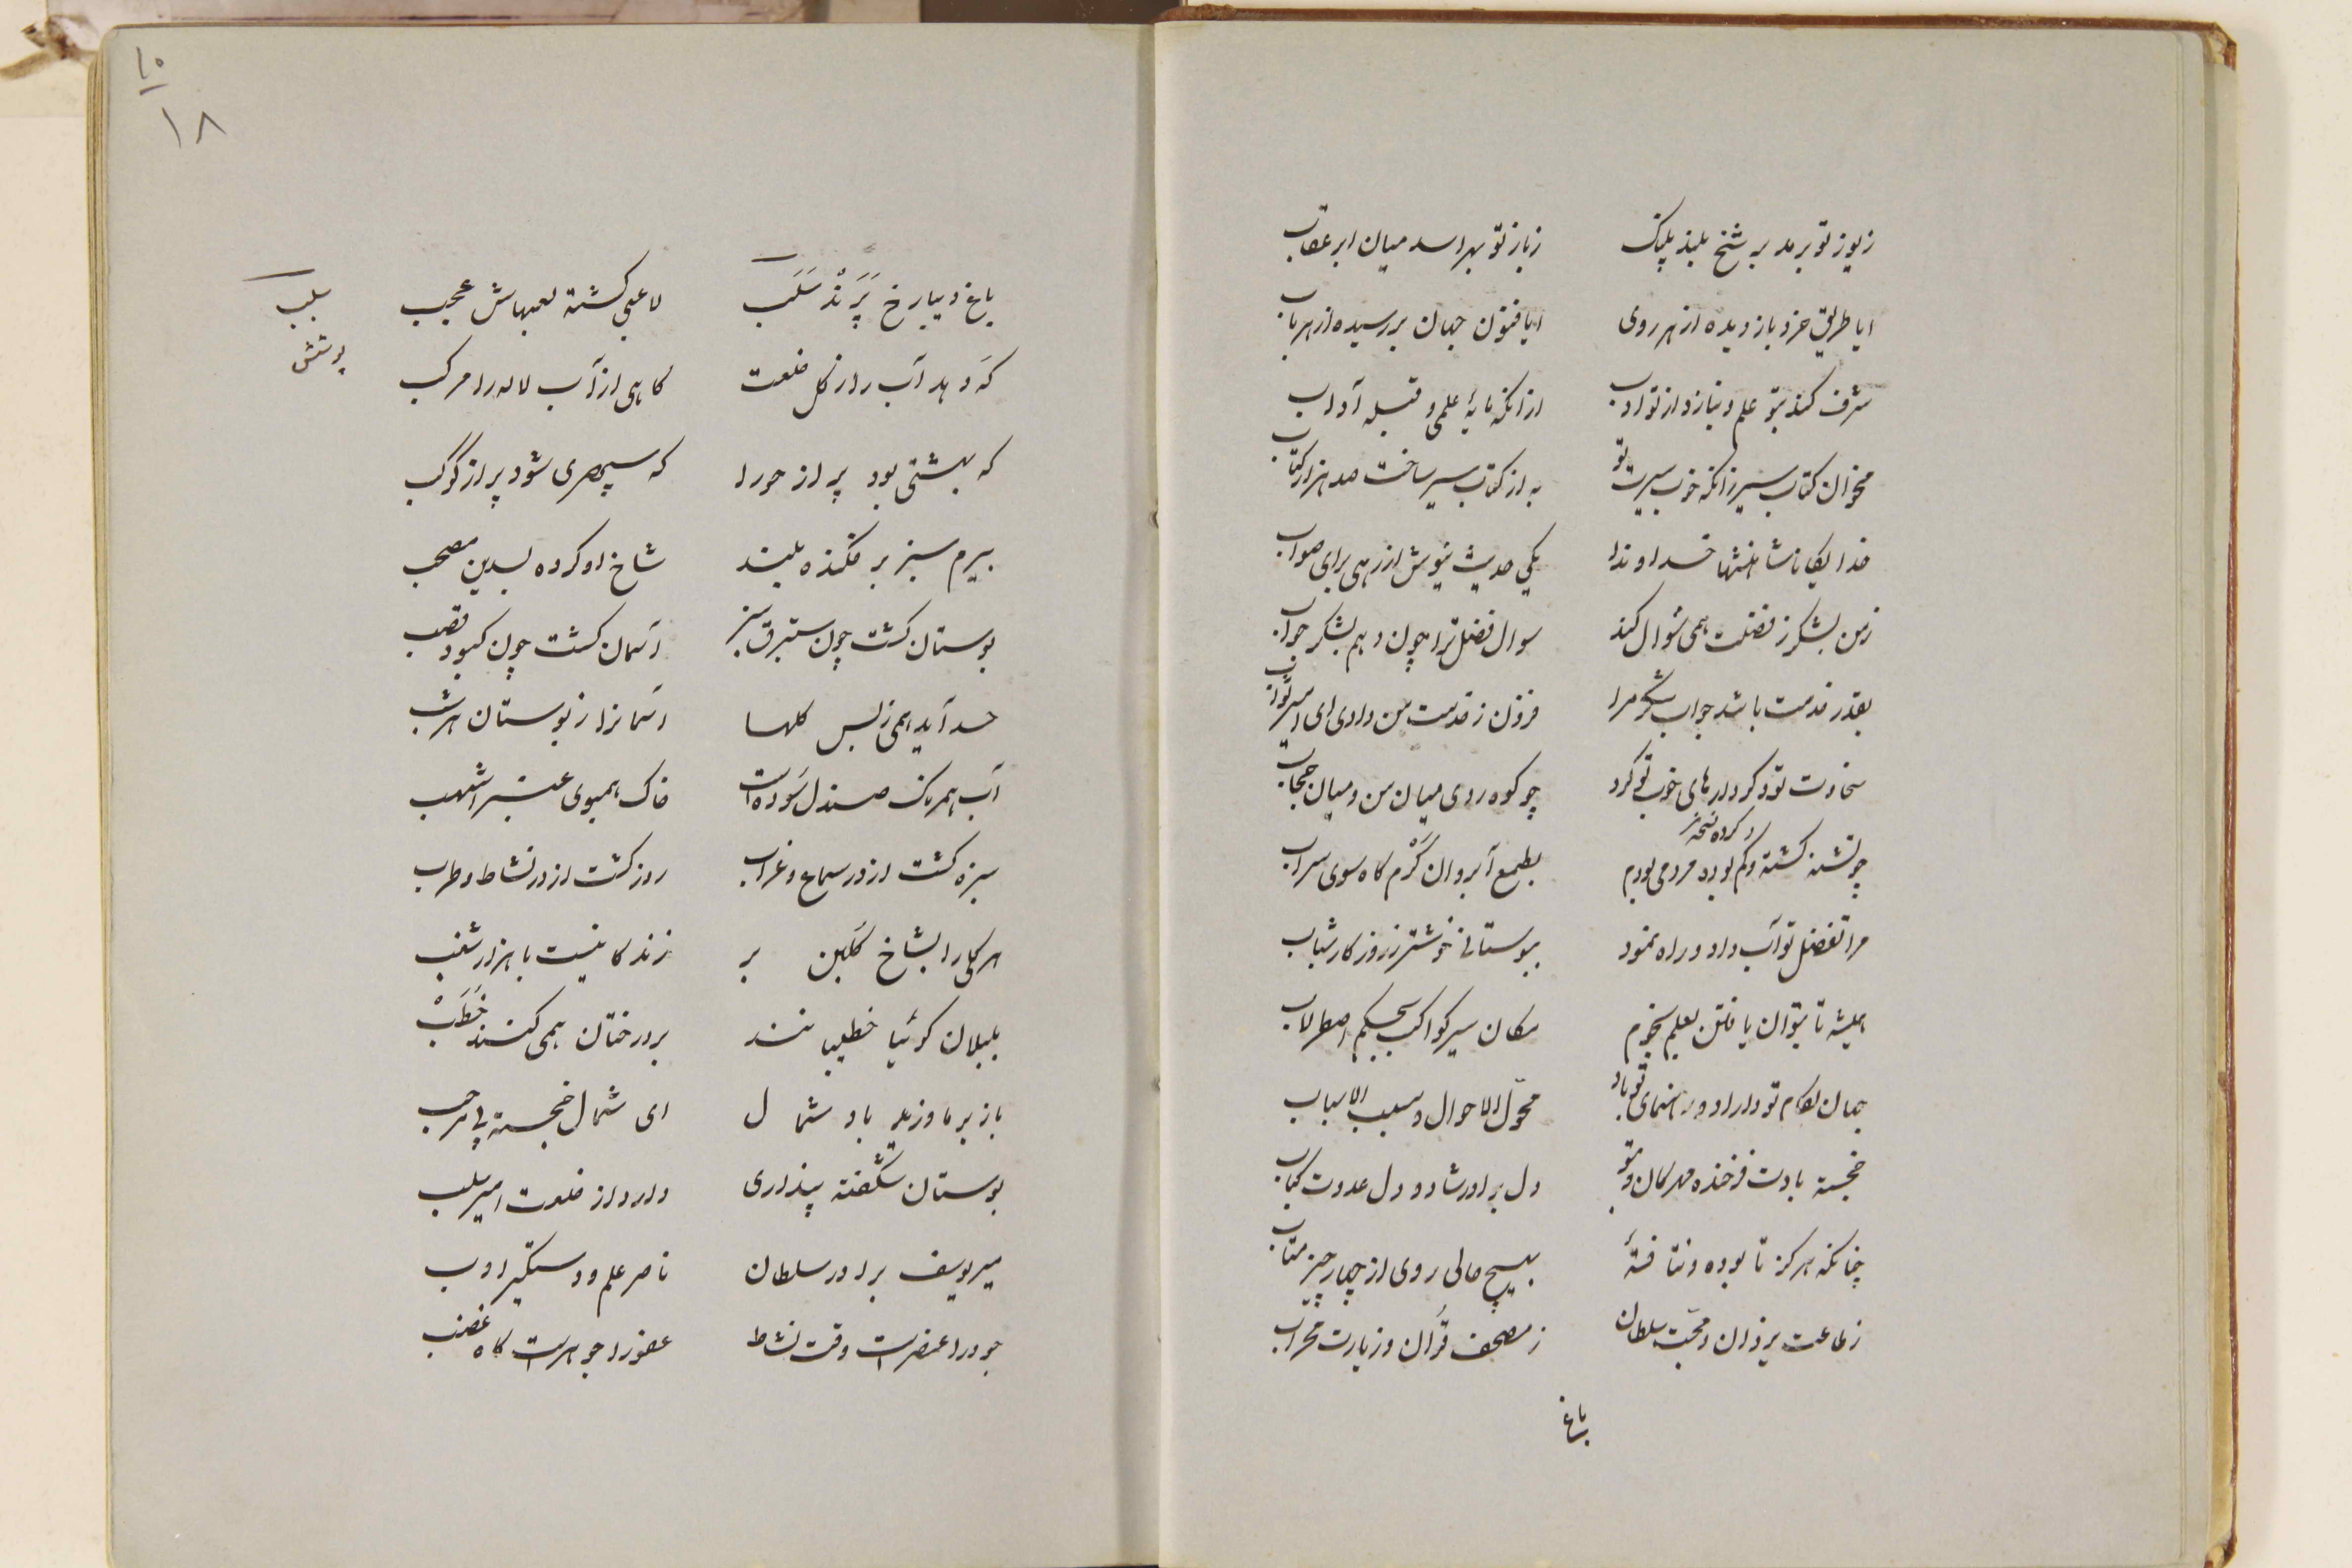 زیوز تو برمد بر شخ بلند پلنک    زباز تو بهراسد میان ابر عقاب
ایا طریق خرد باز دیده از هر روی    ایا فنون جهان بررسیده از هر باب
شرف کند بتو علم و بنازد از تو ادب    ازانکه مایهٔ علمی و قبلهٔ آداب
مخوان کتاب سیر زانکه خوب سیرت تو    به از کتاب سیر ساخت صد هزار کتاب
خدایکانا شاهنشها خداوندا    یکی حدیث نیوش از رهی برای صواب
زمن بشکر ز فضلت همی سؤال کند    سوال فضل ترا چون دهم بشکر جواب
بقدر خدمت باشد جواب شکر مرا    فزون ز خدمت من دادی ای امیر ثواب
سخاوت تو و کردارهای خوب تو کرد    چو کوه روی میان من و میان حجاب
کرده نسخه
چو تشنه کشته و کم بوده مردمی بودم    بطمع آب روان کرم کاه سوی سراب
مرا تفضل تو آب داد و راه نمود    ببوستانی خوشتر ز روزکار شباب
همیشه تا بتوان یافتن بعلم نجوم    مکان سیر کواکب بحکم اصطرلاب
جهان بکام تو دارادو رهنمای تو باد    محوّل الاحوال و مسبب الاسباب
خجسته بادت و فرخنده مهرکان و بتو    دل برادر شاد و دل عدوت کباب
چنانکه هرکز تا بوده و نتافتهٔ    بهیچ حالی روی از چهار چیز متاب
زطاعت یزدان و محبت سلطان    ز مصحف قرآن و زیارت محراب
باغ
۱۸
باغ دیبا رخ پَرَندْ سَلَب    لاعبی کشته لعبهاش عجب
سلب
پوشش
که دهد آب را ز کل خلعت    کاهی از آب لاله را مرکب
که بهشتی بود پر از حورا    که سپهری شود پر از کوکب
بیرم سبز بر فکنده بلند    شاخ او کرده بسدین مصحب
بوستان کشت چون ستبرق سبز    آسمان کشت چون کبود قصب
حسد آید همی ز بس کلها    آسمانرا ز بوستان هر شب
آب همرنک صندل سوده است    خاک همبوی عنبر اشهب
سبزه کشت از در سماع و شراب    روز کشت از در نشاط و طرب
هر کلی را بشاخ کلبن بر    زندکانیست با هزار شغب
بلبلان کوئیا خطیبانند    بر درختان همی کنند خُطَبْ
باز بر ما وزید باد شمال    ای شمال خجسته پی مرحب
بوستان شکفته پنداری    دارد از خلعت امیر سلب
میر یوسف برادر سلطان    ناصر علم و دستکیر ادب
جود را عنصرست وقت نشاط    عفو را جوهرست کاه غضب